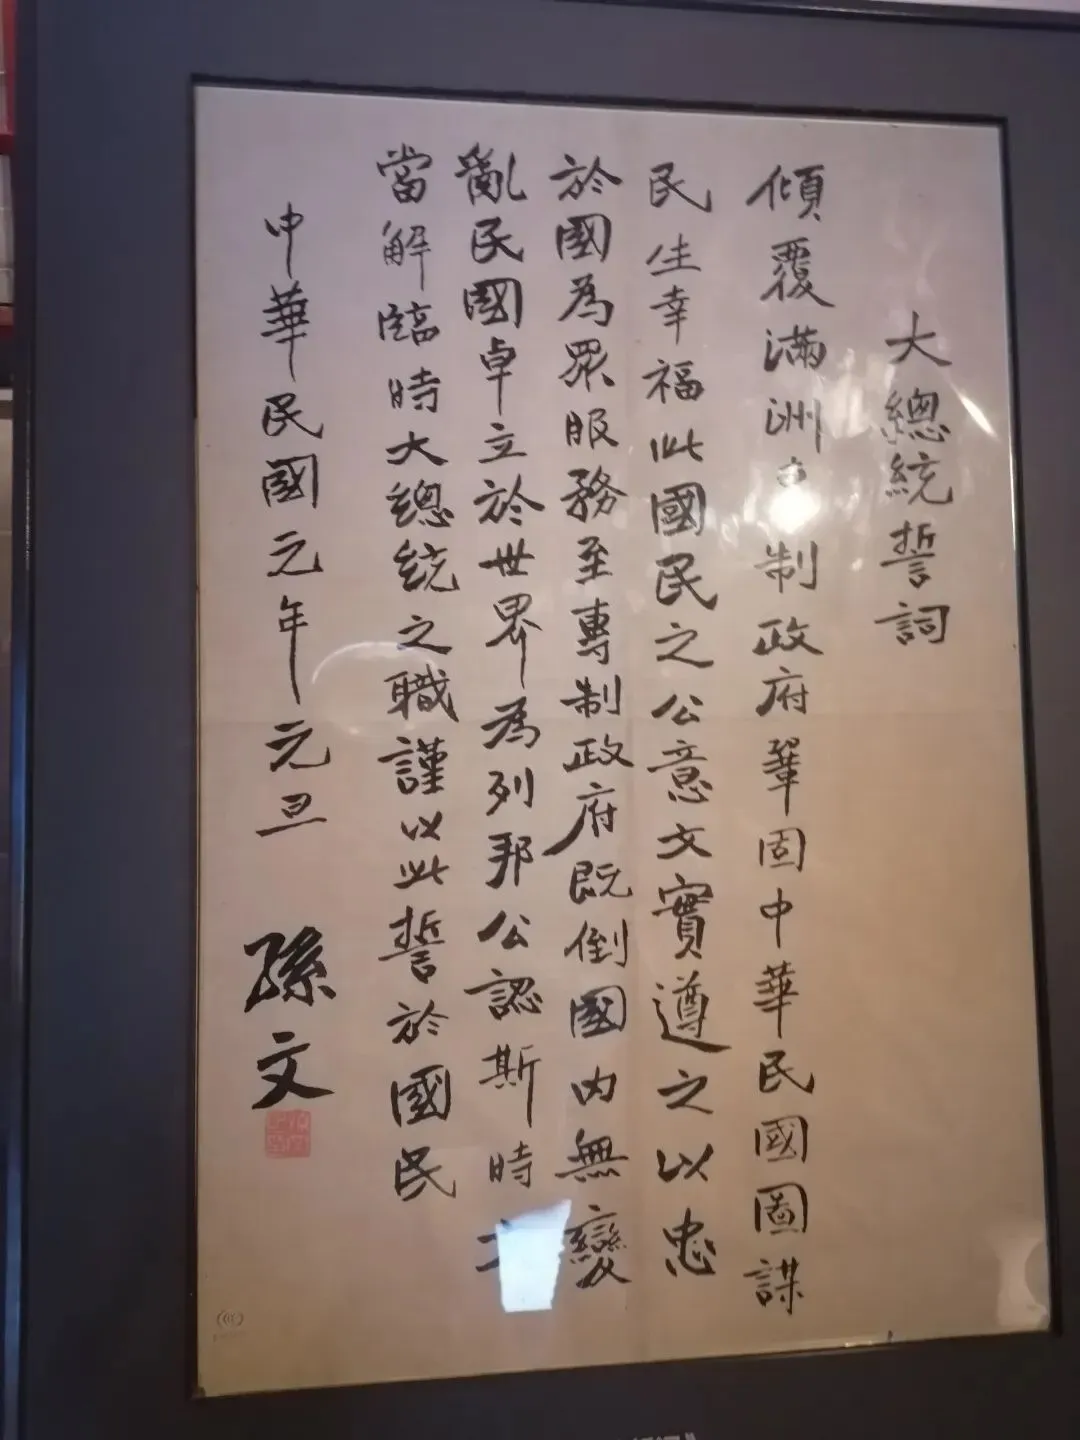 大總統誓詞
傾覆滿洲制政府鞏固中華民國圖謀
民生幸福此國民之公意文實遵之以忠
於國為眾服務至專制政府既倒國內無變
亂民國卓立於世界為列邦公認斯時文
當解臨時大總統之職謹以此誓於國民
中華民國元年元旦
孫文